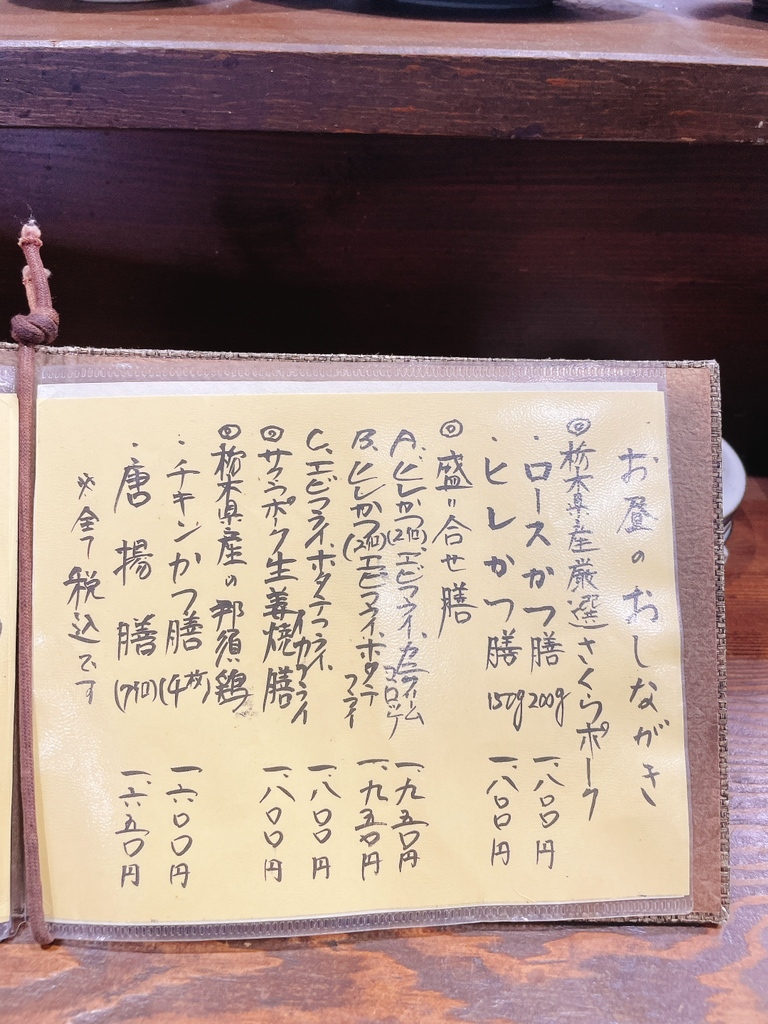 お昼のおしながき
◎栃木県産厳選さくらポーク
・ロースかつ膳 200g 一、八〇〇円
・ヒレかつ膳 150g 一、八〇〇円
◎盛り合せ膳
A、ヒレかつ(2個)、エビフライ、カニクリームコロッケ 一、九五〇円
B、ヒレかつ(2個)エビフライ、ホタテフライ 一、九五〇円
C、エビフライ、ホタテフライ、イカフライ 一、八〇〇円
◎サクラポーク生姜焼膳 一、八〇〇円
◎栃木県産の那須鶏
・チキンかつ膳(4枚) 一、六〇〇円
・唐揚膳(7個) 一、六五〇円
※全て税込です